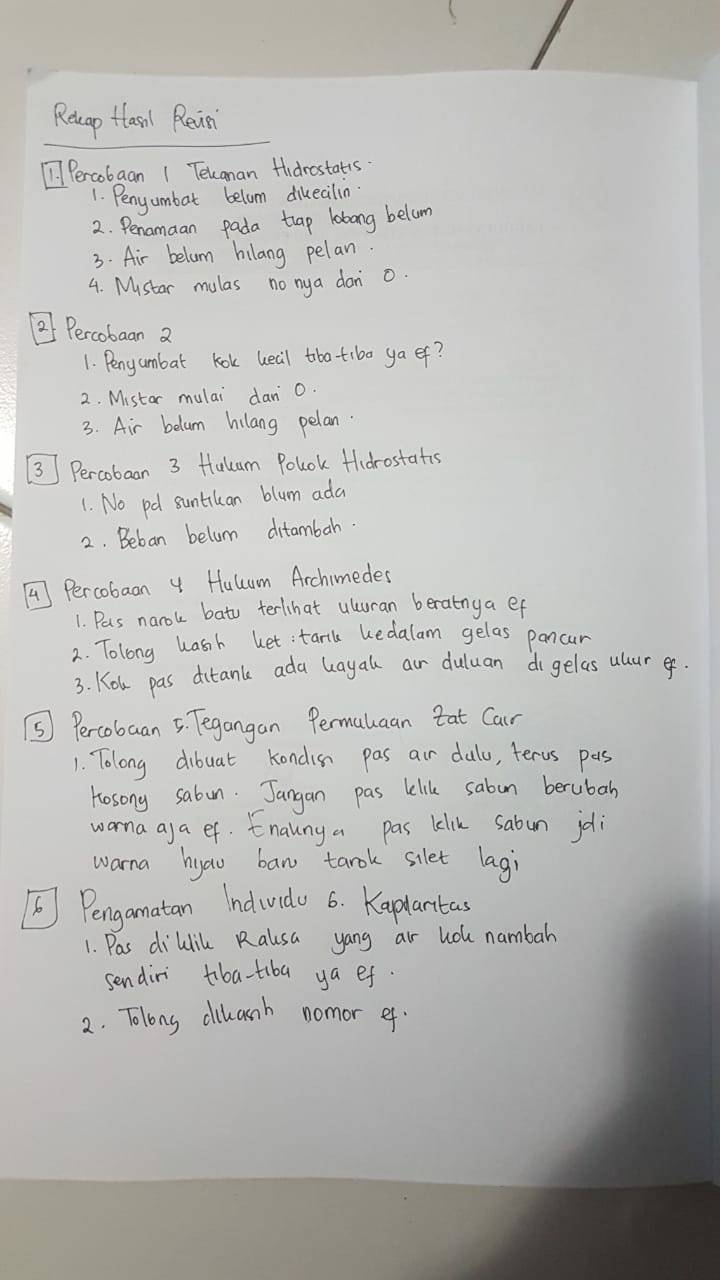 Rekap Hasil Revisi
1. Percobaan 1 Tekanan Hidrostatis.
1. Penyumbat belum dikecilin.
2. Penamaan pada tiap lobang belum
3. Air belum hilang pelan.
4. Mistar mulas no nya dari 0.
2 Percobaan 2
1. Penyumbat kok kecil tiba-tiba ya ef?
2. Mistar mulai dari 0.
3. Air belum hilang pelan.
3 Percobaan 3 Hukum Pokok Hidrostatis
1. No pd suntikan blum ada
2. Beban belum ditambah.
4 Percobaan 4 Hukum Archimedes
1. Pas narok batu terlihat ukuran beratnya ef
2. Tolong kasih ket : tarik kedalam gelas pancur
3. Kok pas ditarik ada kayak air duluan di gelas ukur ef.
5 Percobaan 5. Tegangan Permukaan Zat Cair
1. Tolong dibuat kondisi pas air dulu, terus pas
kosong sabun. Jangan pas klik sabun berubah
warna aja ef. Enaknya pas klik sabun jdi
warna hijau baru tarok silet lagi
6 Pengamatan Individu 6. Kapilaritas
1. Pas di klik Raksa yang air kok nambah
sendiri tiba-tiba ya ef.
2. Tolong dikasih nomor ef.